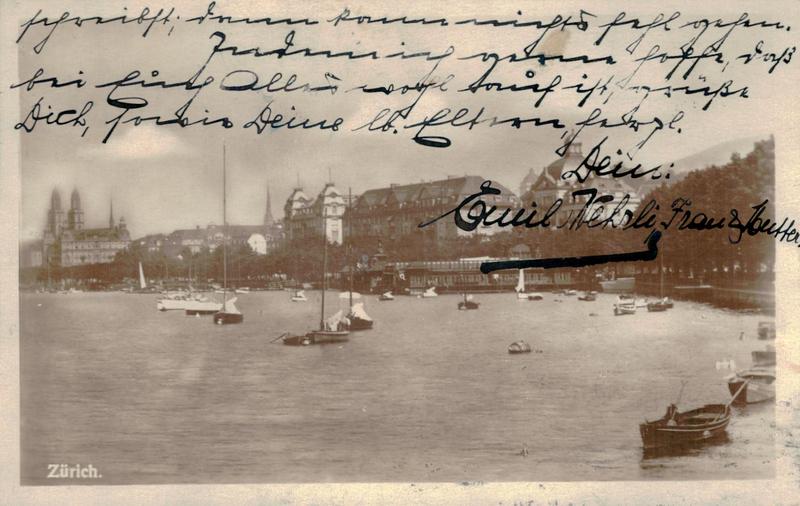 schreibst; dann kann nichts fehl gehen.
Indem ich gerne hoffe, daß
bei Euch Alles wohl auf ist, grüße
Dich, sowie Deine lb. Eltern, herzl.
Dein:
Emil Wehrli, Franz
Zürich.